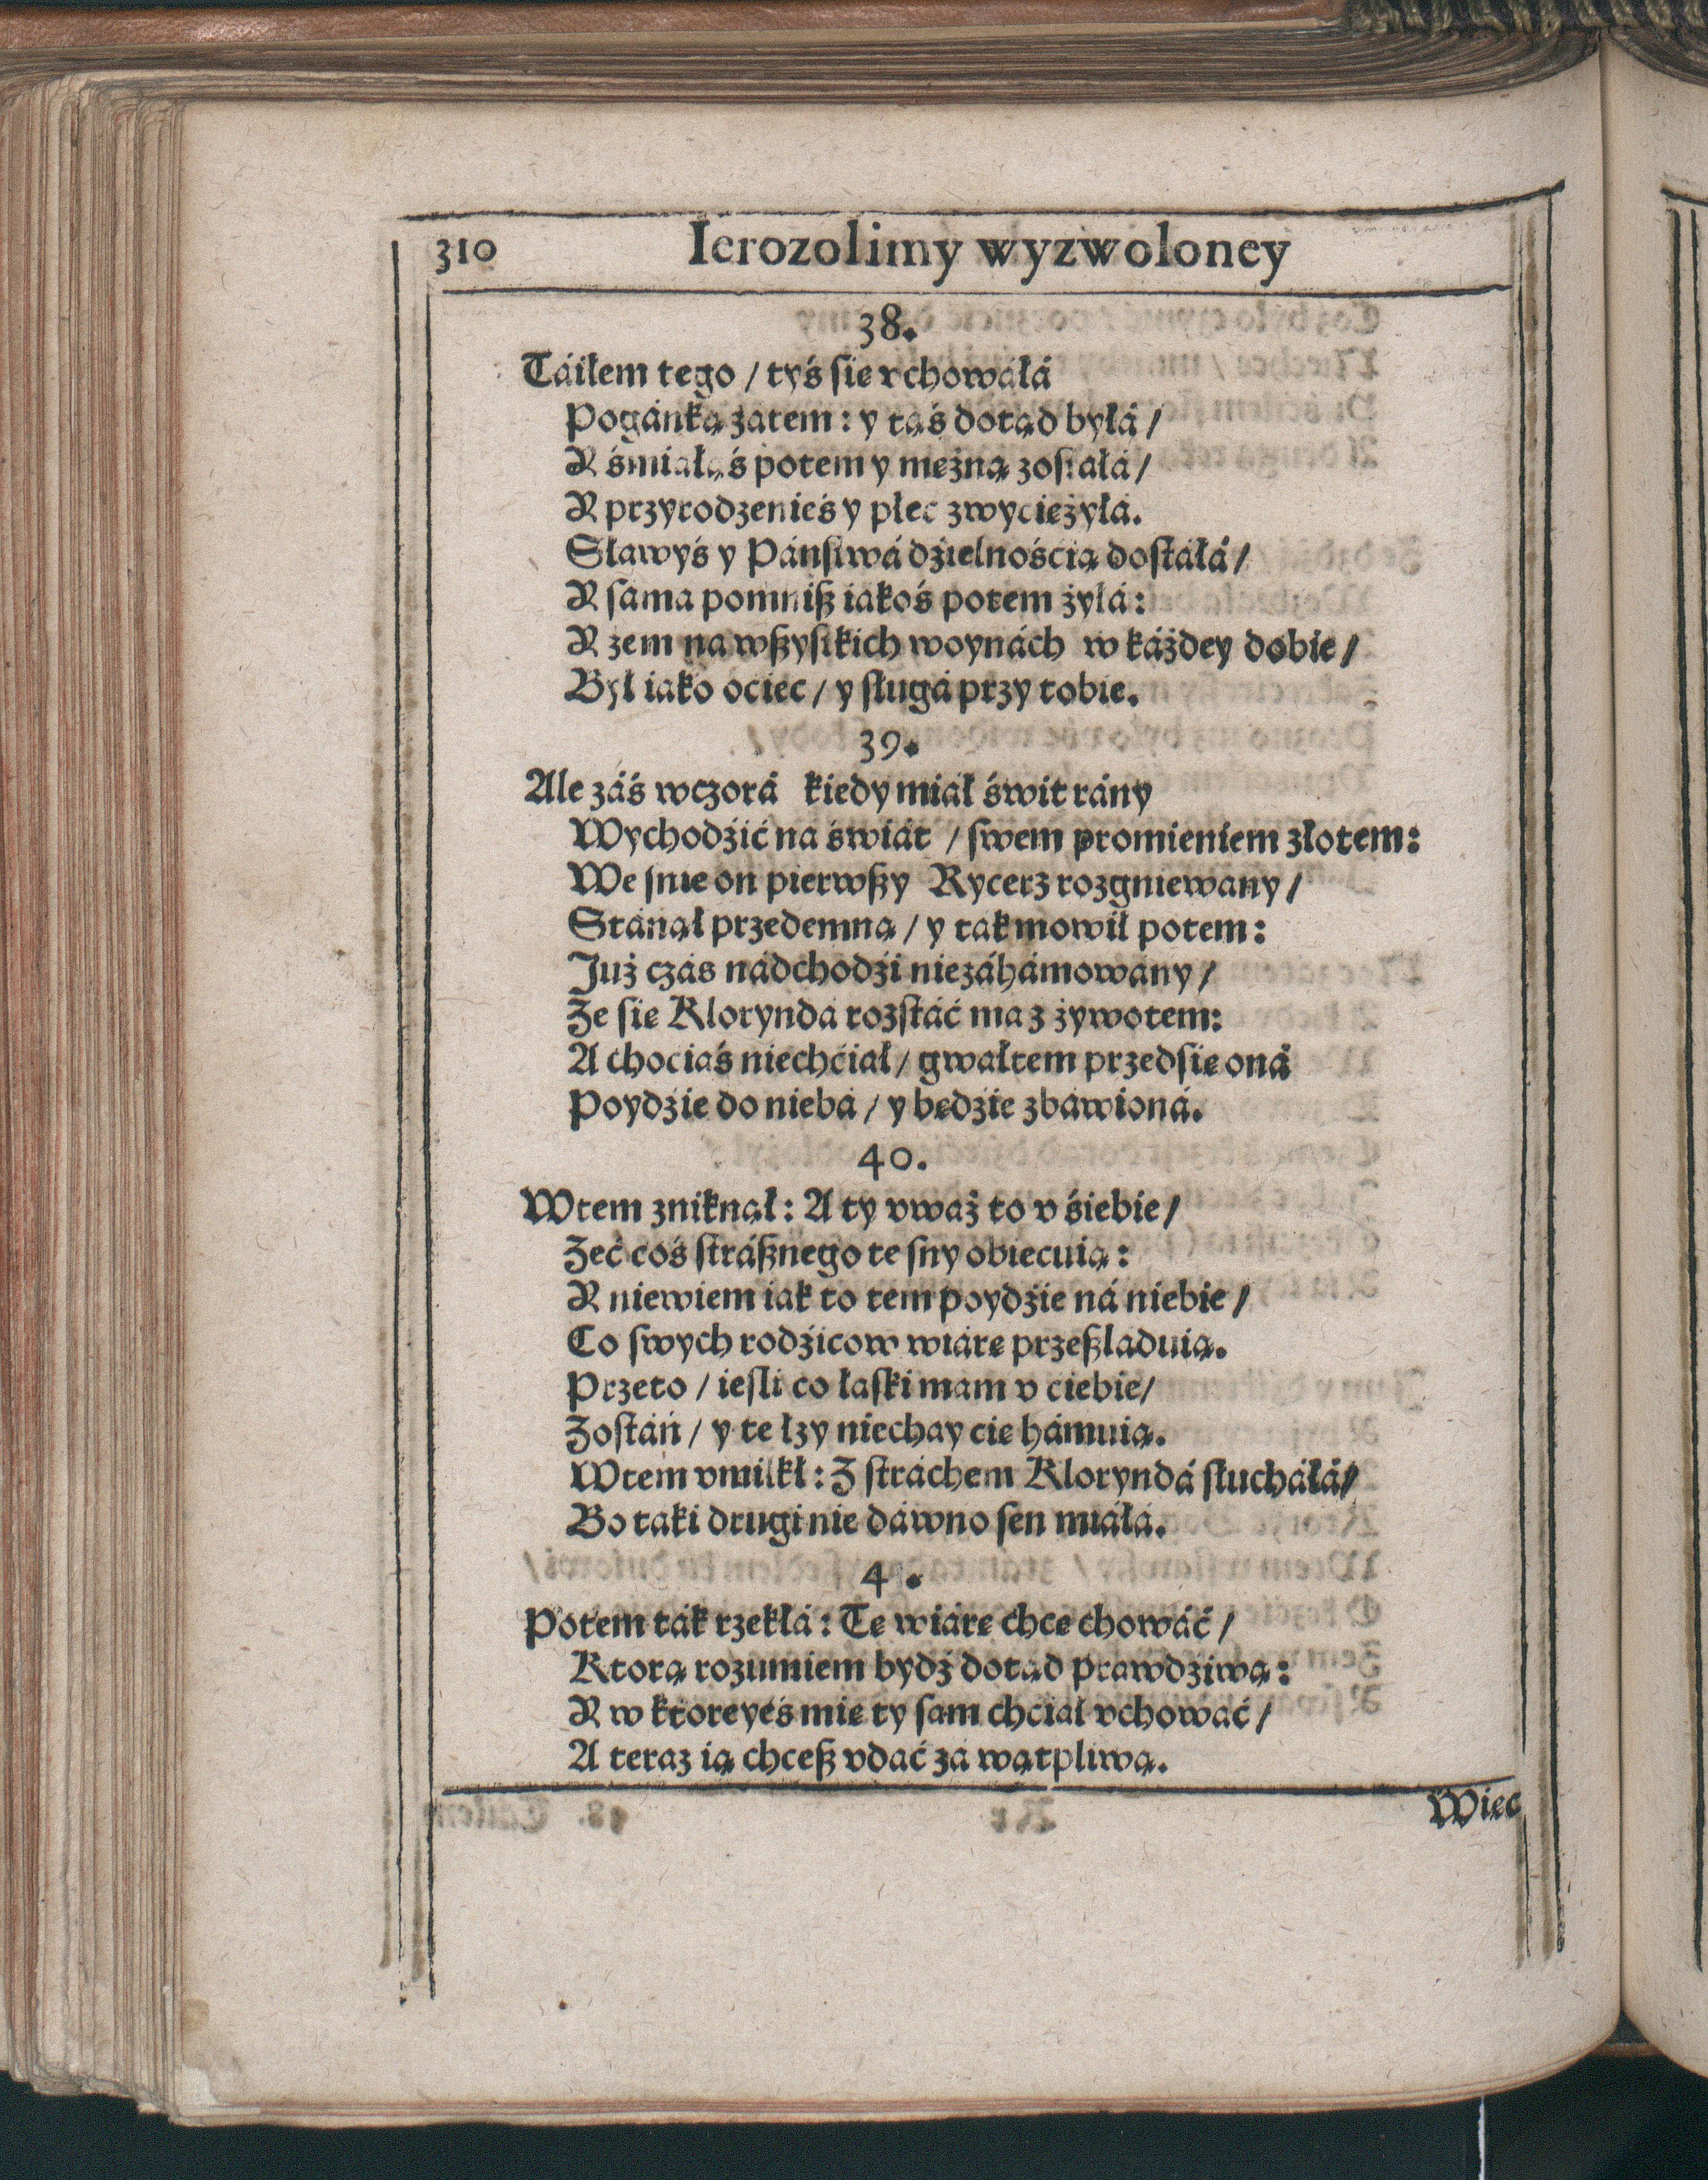 310 Ierozolimy wyzwoloney
38.
Táiłem tego / tyś ſie vchowáłá
Pogánką zátem: y tąś dotąd byłá /
Y śmiałąś potem y mężną zoſtałá /
Y przyrodzenieś y płeć zwyciężyłá.
Sławyś y Páńſtwá dźielnośćią doſtáłá /
Y ſámá pomniſz iákoś potem żyłá:
Y żem na wſzyſtkich woynách w káżdey dobie /
Był iáko ociec / y ſługá przy tobie.
39.
Ale záś wczorá kiedy miał świt rány
Wychodźić na świát / ſwem promieniem złotem:
We ſnie on pierwſzy Rycerz rozgniewany /
Stánął przedemną / y tak mowił potem:
Już czás nádchodźi niezáhámowány /
Że ſie Klorynda rozſtáć ma z żywotem:
A choćiaś niechćiał / gwałtem przedſię oná
Poydźie do niebá / y będźie zbáwioná.
40.
Wtem zniknął: A ty vważ to v śiebie /
Żeć coś ſtráſznego te ſny obiecuią:
Y niewiem iak to tem poydźie ná niebie /
Co ſwych rodźicow wiárę przeſzláduią.
Przeto / ieſli co łaſki mam v ciebie /
Zoſtáń / y te łzy niechay cię hámuią.
Wtem vmilkł: Z ſtráchem Kloryndá ſłucháłá /
Bo taki drugi nie dáwno ſen miáłá.
4 .
Potem ták rzekłá: Tę wiárę chcę chowáć /
Ktorą rozumiem bydź dotąd prawdźiwą:
Y w ktoreyeś mię ty ſam chciał vchowáć /
A teraz ią chceſz vdać zá wątpliwą.
Więc